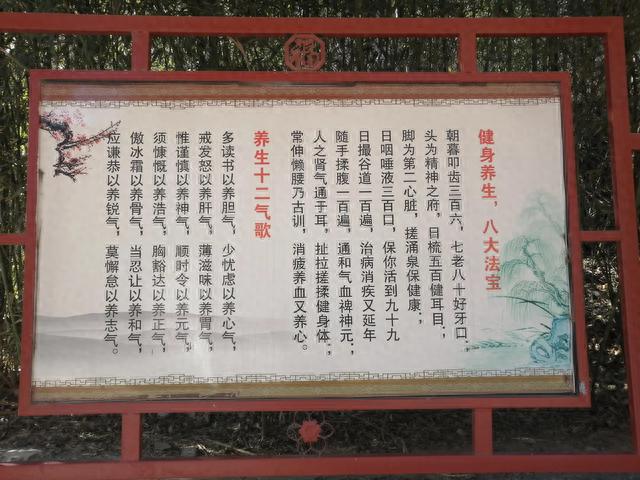 福
健身养生，八大法宝
朝暮叩齿三百六，七老八十好牙口；
头为精神之府，日梳五百健耳目；
脚为第二心脏，搓涌泉保健康；
日咽唾液三百口，保你活到九十九
日撮谷道一百遍，治病消疾又延年
随手揉腹一百遍，通和气血裨神元；
人之肾气通于耳，扯拉搓揉健身体；
常伸懒腰乃古训，消疲养血又养心。
养生十二气歌
多读书以养胆气，少忧虑以养心气，
戒发怒以养肝气，薄滋味以养胃气，
惟谨慎以养神气，顺时令以养元气，
须慷慨以养浩气，胸豁达以养正气，
傲冰霜以养骨气，当忍让以养和气，
应谦恭以养锐气，莫懈怠以养志气。